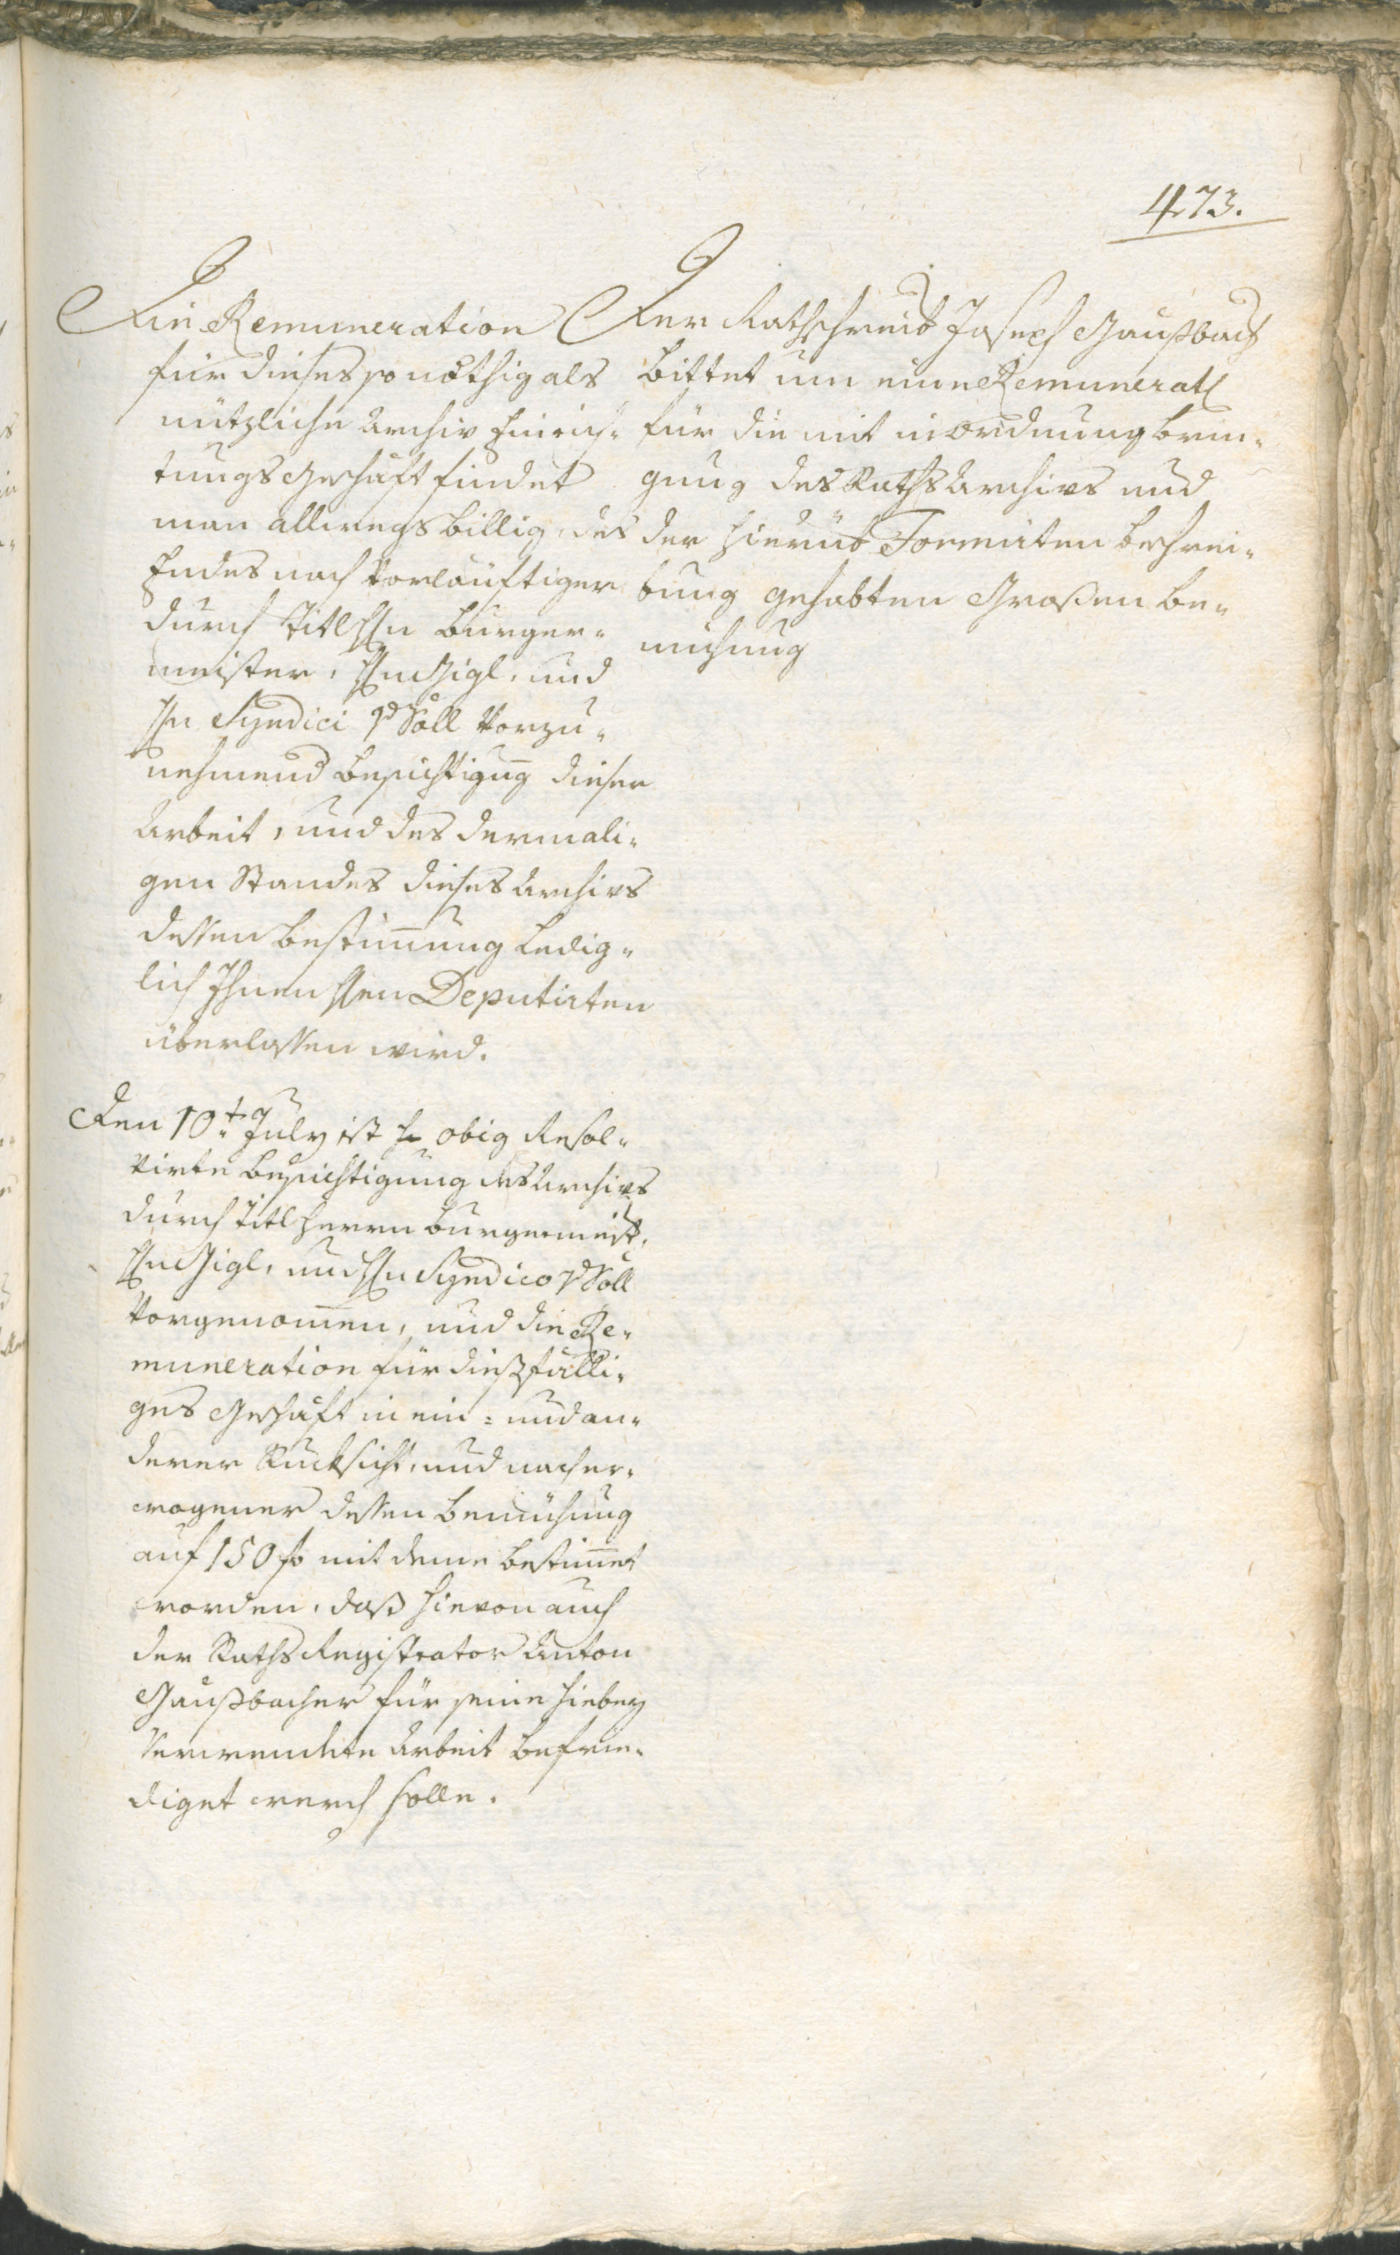 473.
Die Remuneration
für dieses so nöthig als
nützliche Archiv Einrich-
tungs Geschäft findet
man allwegs billig, des
Endes nach vorläuftiger
durch Titl Hn Burger-
meister, Hn Gigl, und
Hn Syndici v Söll vorzu-
nehmend Besichtigung dieser
Arbeit, und des dermali-
gen Standes dieses Archivs
dessen Bestimung Ledig-
lich Ihnen Hen Deputirten
überlassen wird.
Den 10t July ist obig Resol-
virte Besichtigung des Archivs
durch Titl Herrn Burgermeist,
Hn Gigl, und Hn Syndico v Söll
vorgenomen, und die Re-
muneration für dießfälli-
ges Geschäft in ein- und an-
derer Rucksicht, und nach er-
wogener dessen Bemühung
auf 150 f mit deme bestimet
worden, daß hievon auch
der Raths Registrator Anton
Gaußbacher für seine hiebey
Verwendete Arbeit befrie-
diget werd solle.
Der Rathschreib Joseph Gaußbach
bittet um eine Remunerat
für die mit in Ordnung brin-
gung des Raths Archivs und
der hierüb Formirten beschrei-
bung gehabten Großen Be-
mühung